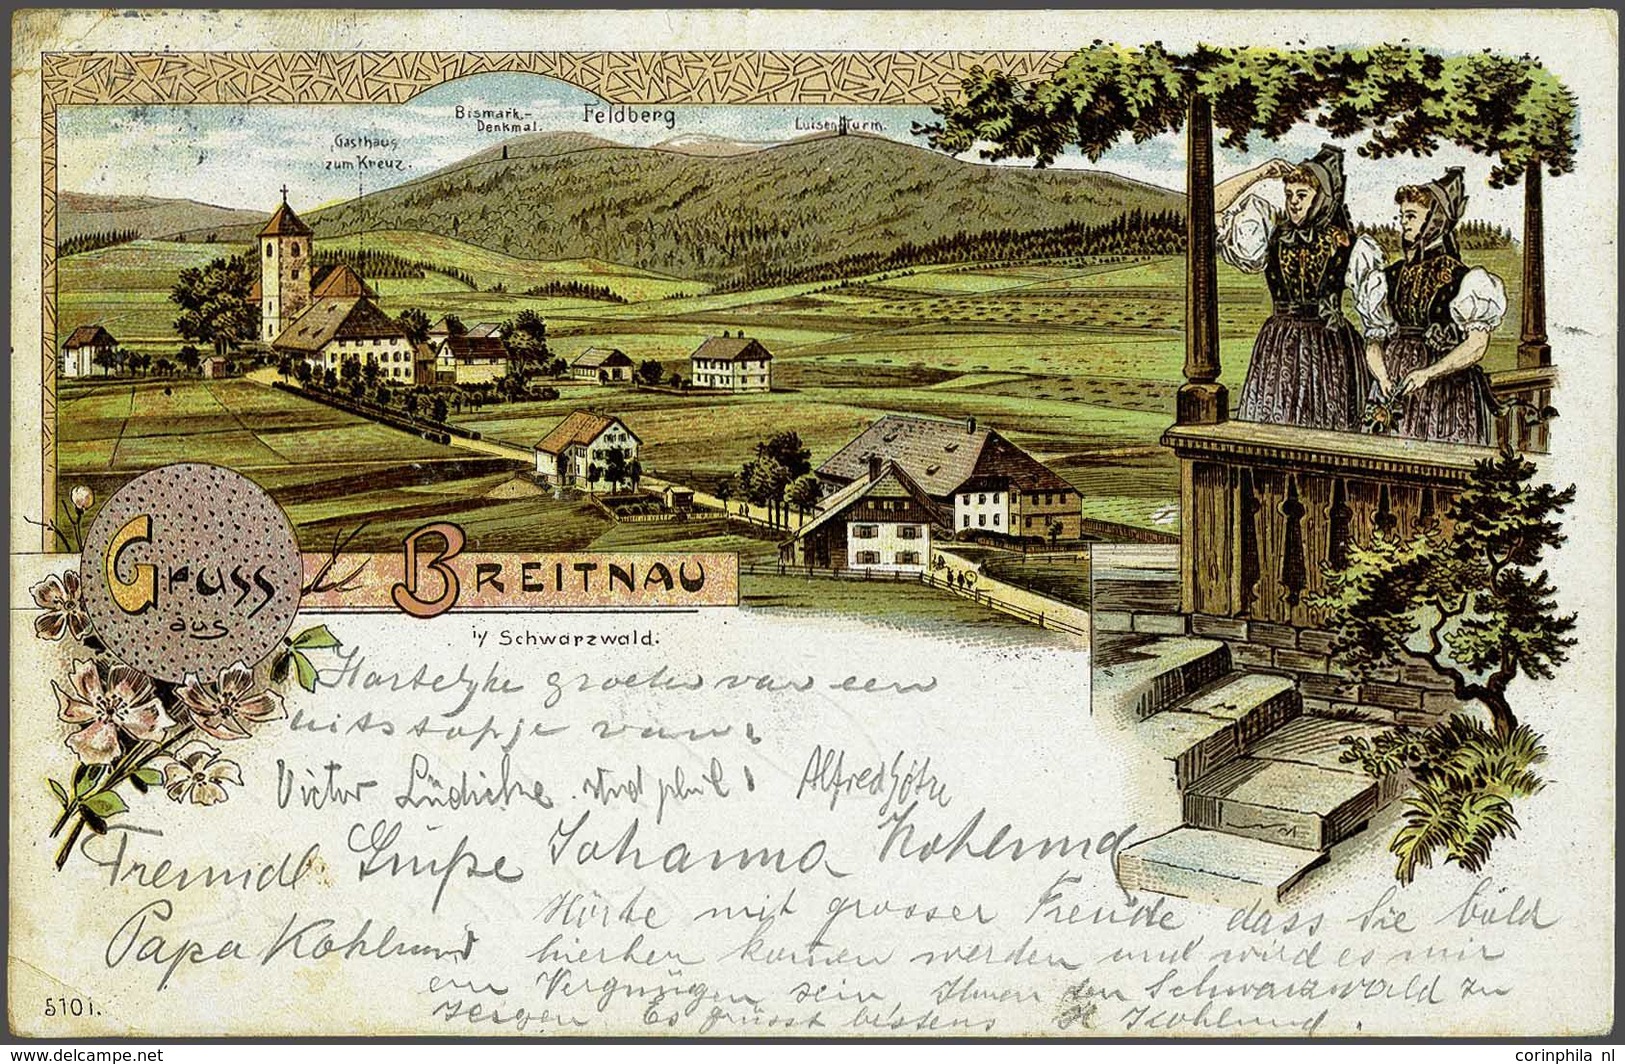 Bismark.-
Denkmal.
Feldberg
Luisen Turm.
Gasthaus
zum Kreuz.
Gruss
aus
BREITNAU
i/ Schwarzwald.
Hartelijke groeten van een
uitstapje van
Victor Lüdicke stud phil. Alfred Götze
Freundl. Grüße Johanna Kohlund
Papa Kohlund
Hörte mit grosser Freude dass Sie bald
hierher kommen werden und wird es mir
ein Vergnügen sein, Ihnen den Schwarzwald zu
zeigen. Es grüsst bestens Kohlund.
5101.
www.delcampe.net
corinphila nl